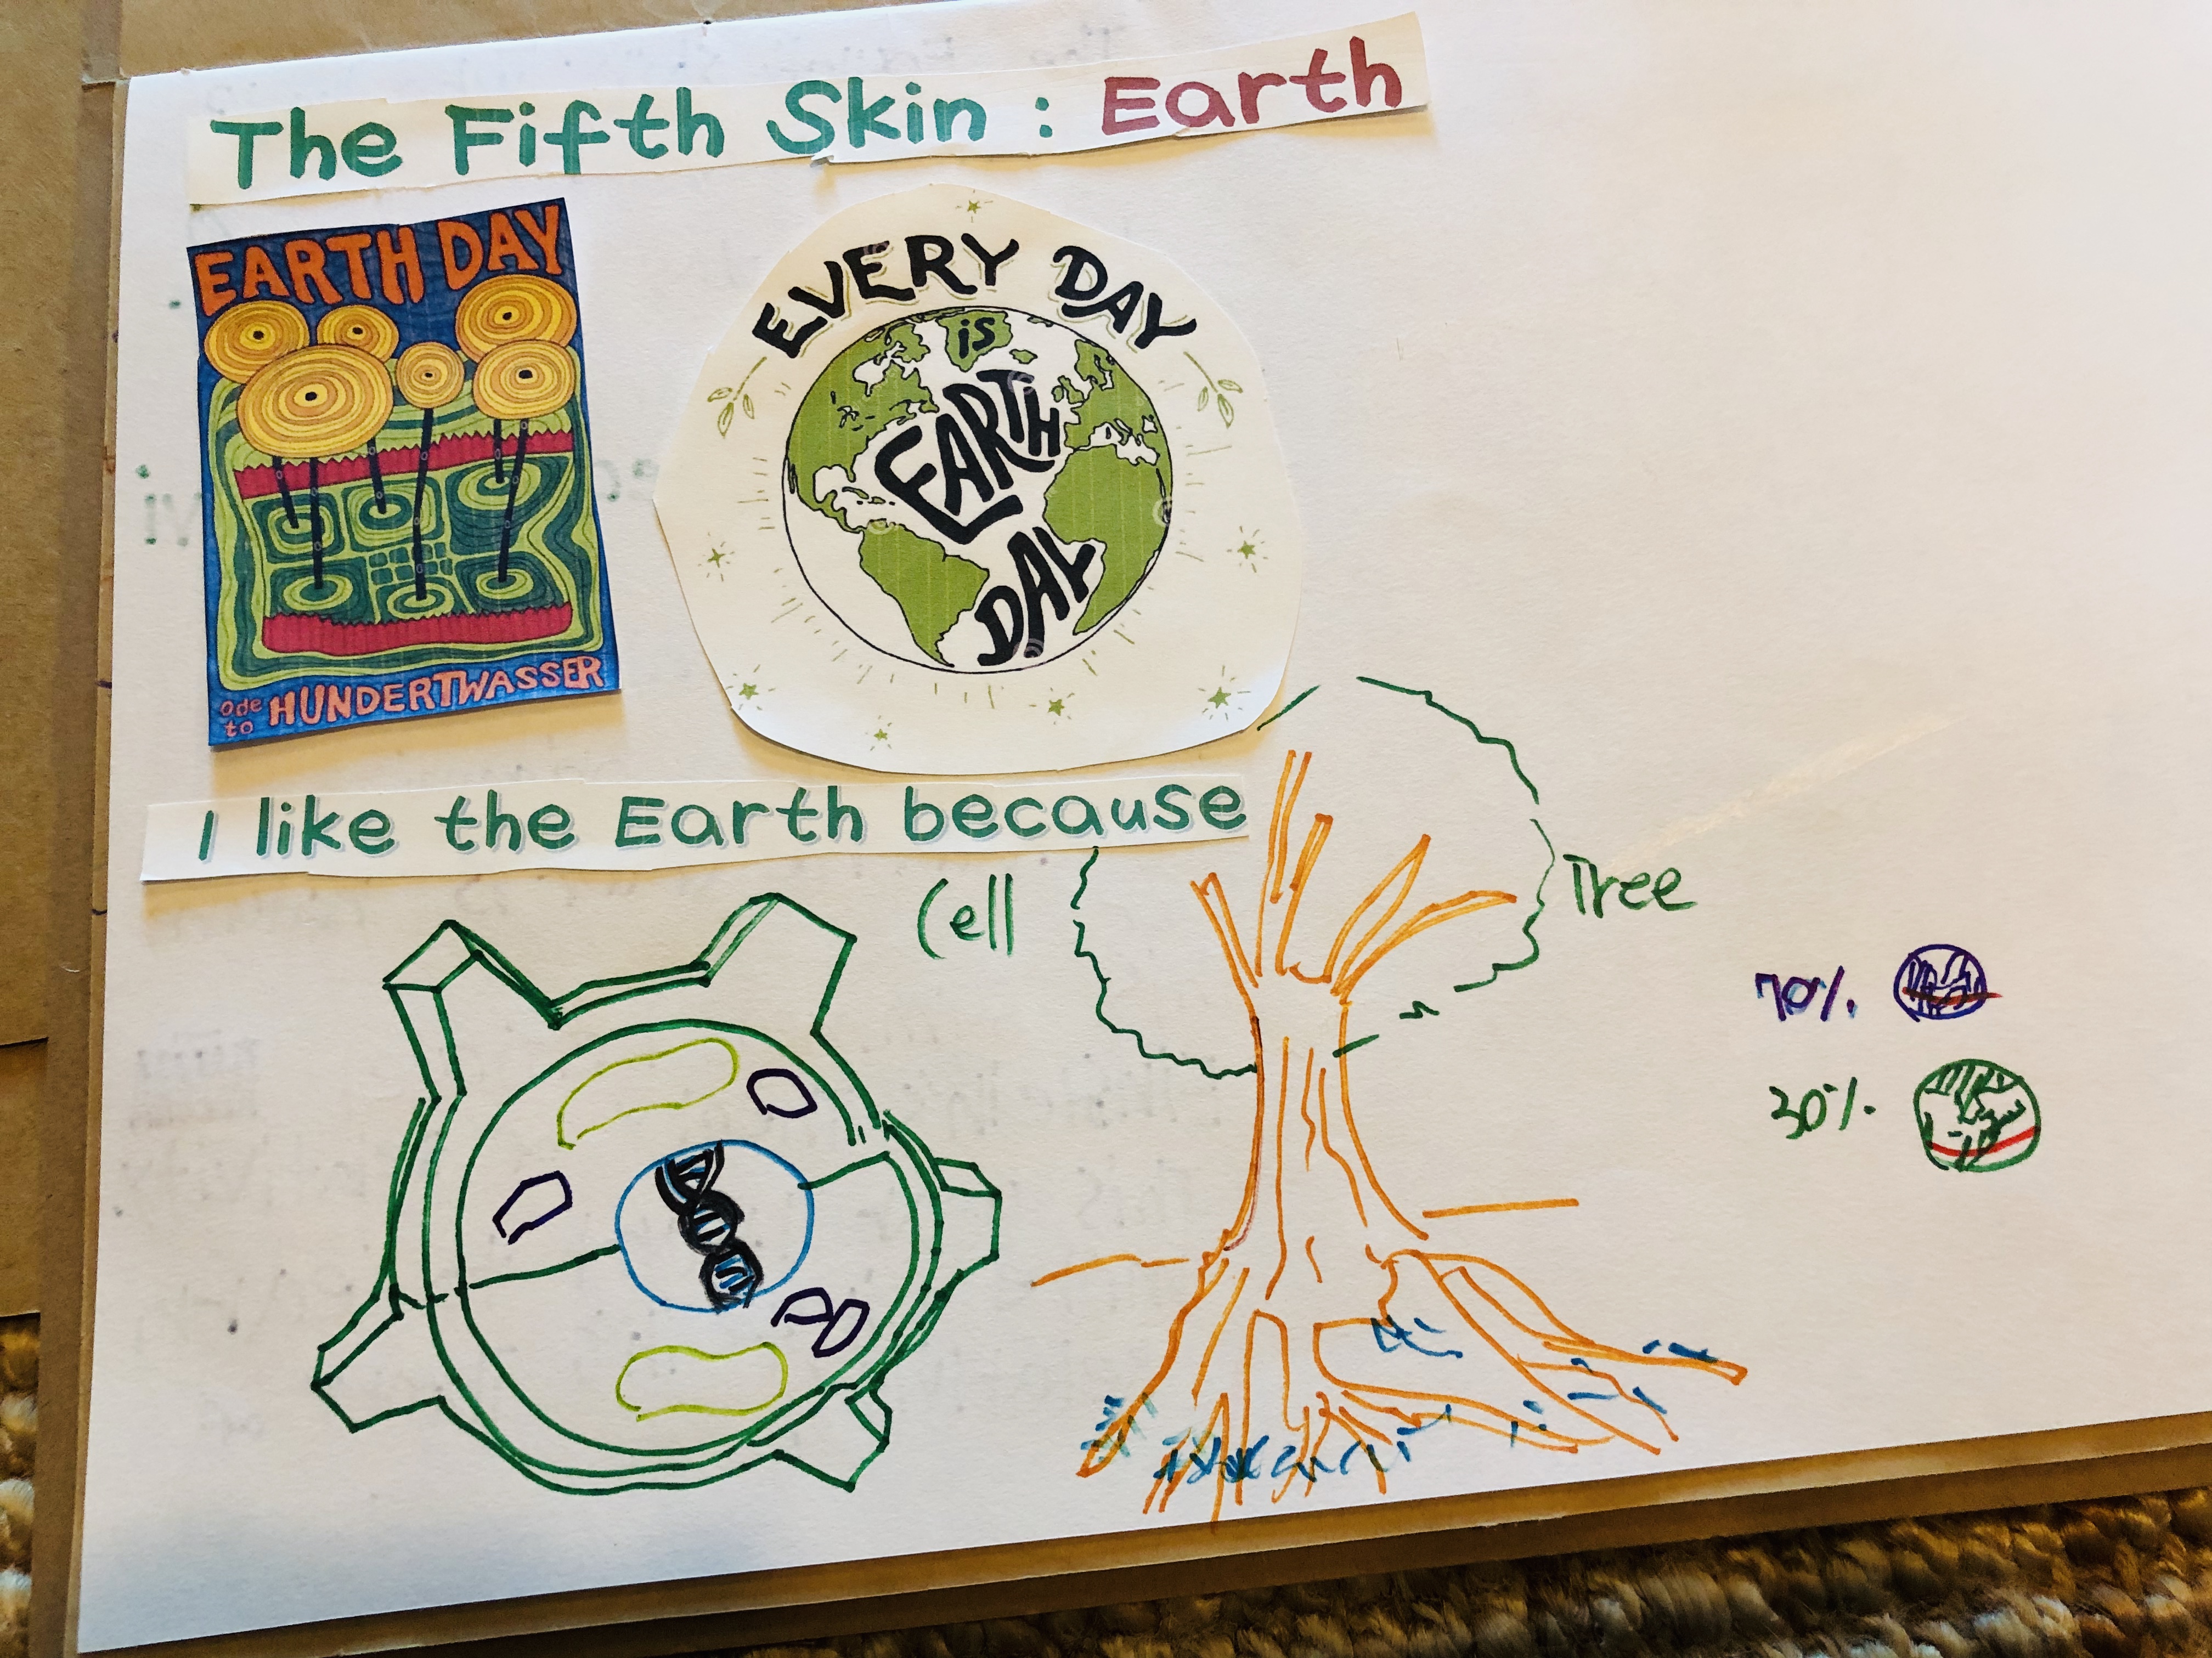 The Fifth Skin : Earth
EARTH DAY
ode to HUNDERTWASSER
EVERY DAY
is
EARTH
DAY
I like the Earth because
Cell
Tree
70%
30%